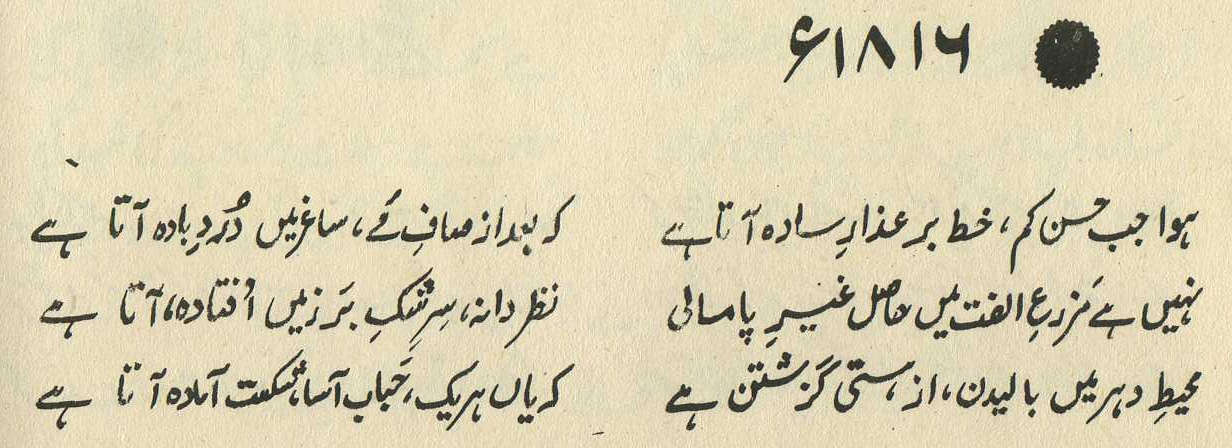 ۱۸۱۶ء
ہوا جب حسن کم، خط بر عذارِ سادہ آتا ہے کہ بعد از صافِ مے، ساغر میں دُردِ بادہ آتا ہے
نہیں ہے مَزرعِ الفت میں حاصل غیرِ پامالی نظر دانہ، سِرِشکِ بَر زمیں اُفتادہ، آتا ہے
محیطِ دہر میں بالیدن، از ہستی گزشتن ہے کہ یاں ہر یک، حَباب آسا، شکست آمادہ آتا ہے